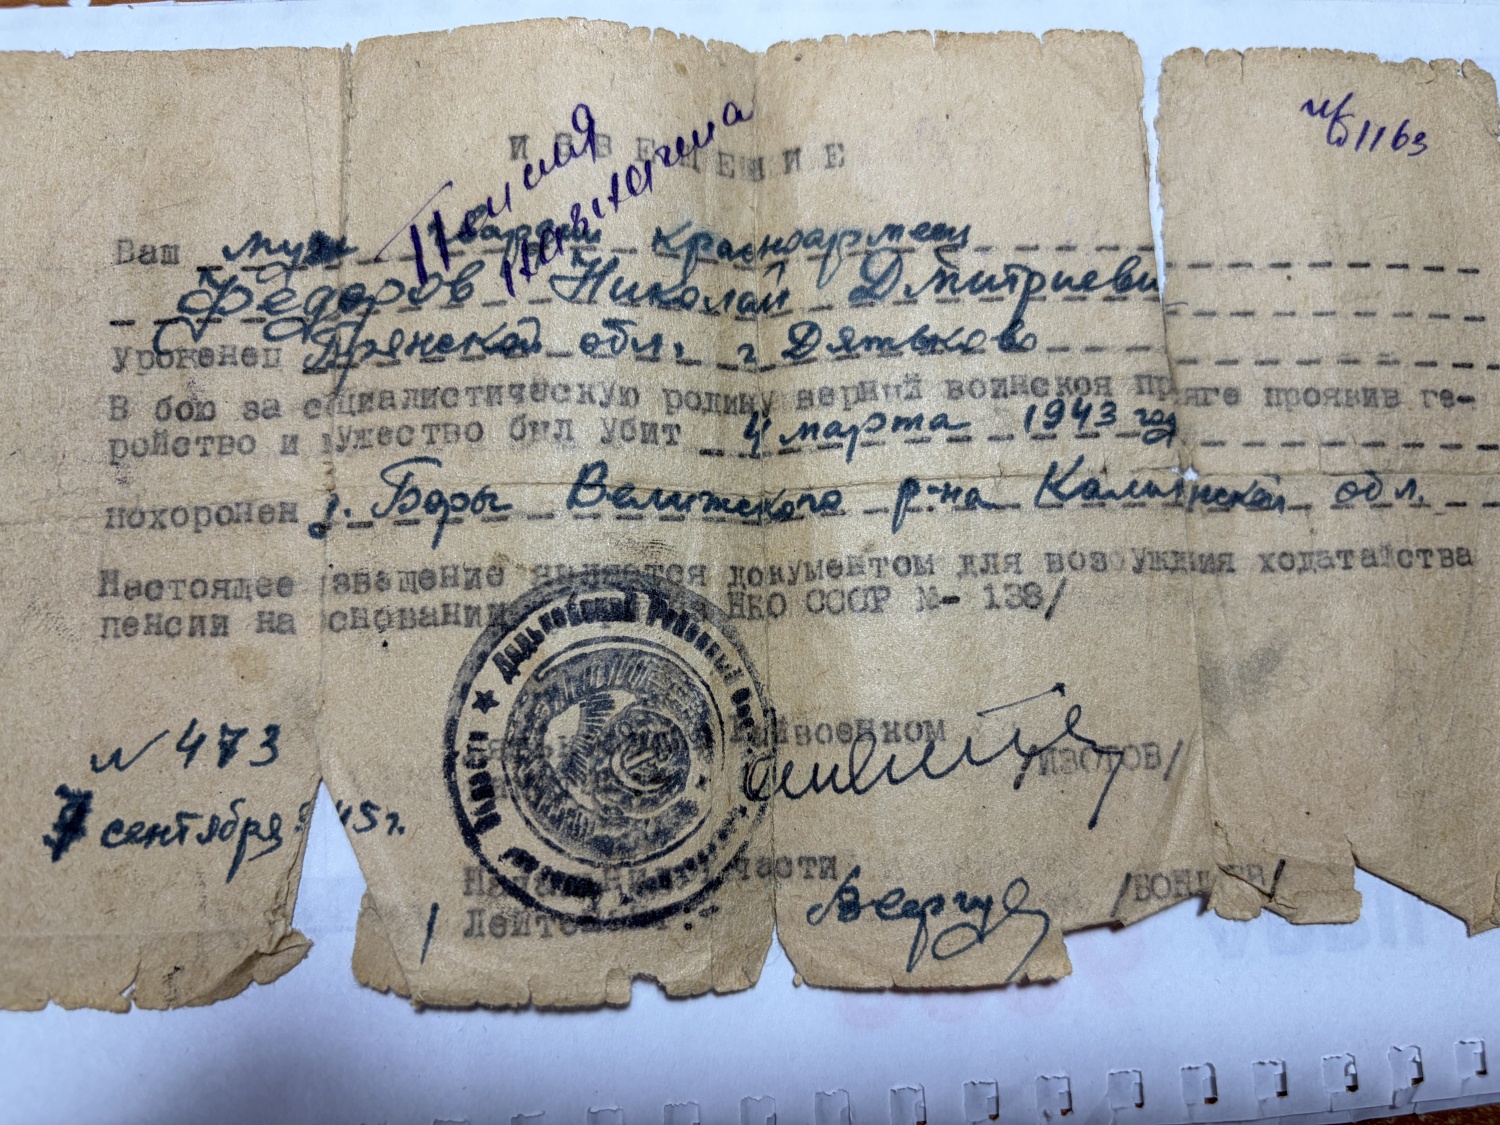 № 1163
ИЗВЕЩЕНИЕ
Пенсия
назначена
Ваш муж гвардии красноармеец
Федоров Николай Дмитриеви
уроженец Брянской обл. г Дятьково
В бою за социалистическую родину верний воинской пр яге проявив ге-
ройство и мужество был убит 4 марта 1943 год
похоронен д. Боры Велижского р-на Калининской обл.
Настоящее звещение является документом для возбуждния ходатайства
пенсии на основании НКО СССР №- 138/
Районный
Области
райвоенком
/ИЗОТОВ/
№ 473
7 сентября 45 г.
части
Лейтенант
/БОНД ЕВ/